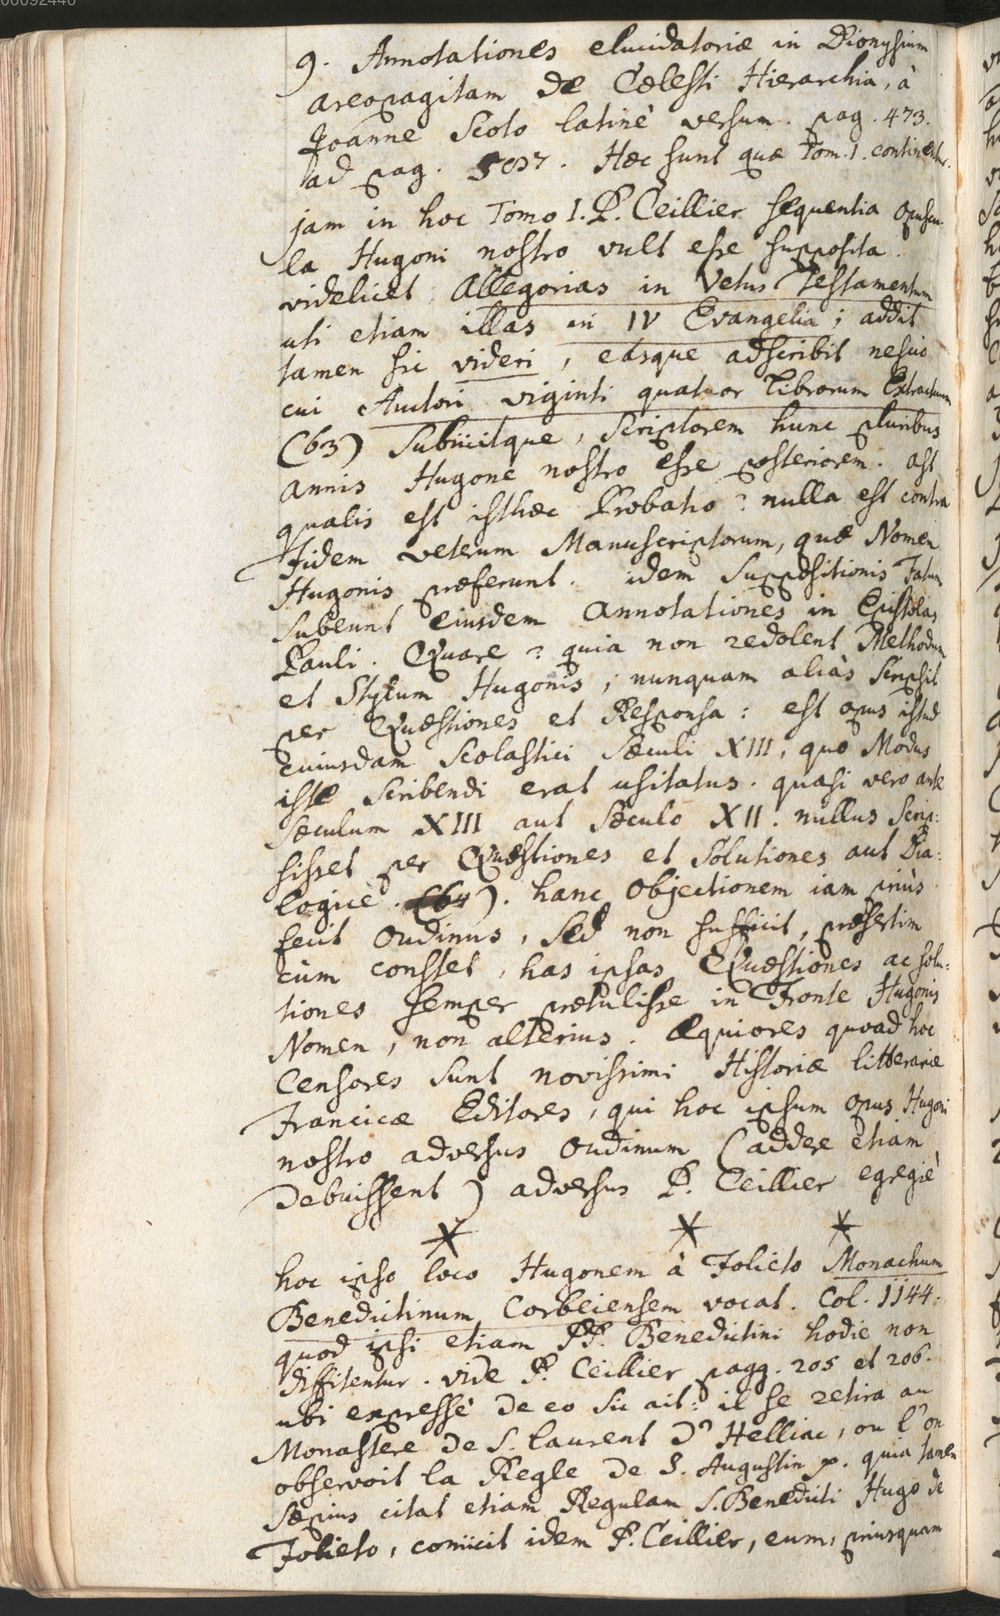 00092440
9. Annotationes elucidatoriæ in Dionysium
areopagitam De Cœlesti Hierarchia, à
Joanne Scoto latinè versum. pag. 473.
ad pag. Hæc sunt quæ Tom. I. continentur.
jam in hoc Tomo I. P. Ceillier sequentia opuscu-
la Hugoni nostro vult esse supposita.
videlicet Allegorias in Vetus Testamentum
uti etiam illas in IV Evangelia; addit
tamen sic videri, easque adscribit nescio
cui Auctori viginti quatuor Librorum Extractuum
(63) Subiicitque, scriptorem hunc pluribus
annis Hugone nostro esse posteriorem. ast
qualis est isthæc Probatio? nulla est contra
Fidem veterum Manuscriptorum, quæ Nomen
Hugonis præferunt. idem Suppositionis Fatum
subeunt eiusdem annotationes in Epistolas
Pauli. Quare? quia non redolent Methodum
et Stylum Hugonis; nunquam aliàs scripsit
per Quæstiones et Responsa: est opus istud
cuiusdam Scolastici Sæculi XIII, quo Modus
iste scribendi erat usitatus. quasi vero ante
Sæculum XIII aut Sæculo XII. nullus Scrip:
sisset per Quæstiones et Solutiones aut Dia:
logicè. (64). hanc objectionem iam priùs
fecit Oudinus, sed non sufficit, præsertim
cùm constet, has ipsas Quæstiones ac solu:
tiones semper prætulisse in Fronte Hugonis
Nomen, non alterius. Æquiores quoad hoc
Censores sunt novissimi Historiæ litterariæ
Francicæ Editores, qui hoc ipsum opus Hugoni
nostro adversus Oudinum (addere etiam
debuissent) adversus P. Ceillier egregiè
* * *
hoc ipso loco Hugonem à Folieto Monachum
Benedictinum Corbeiensem vocat. Col. 1144:
quod ipsi etiam PP. Benedictini hodie non
diffitentur. vide P. Ceillier pagg. 205 et 206.
ubi expressè de eo sic ait: il se retira au
Monastere de S. Laurent d'Helliac, ou l'on
observoit la Regle de S. Augustin p. quia tamen
sæpius citat etiam Regulam S. Benedicti Hugo de
Folieto, coniicit idem P. Ceillier, eum, priusquam